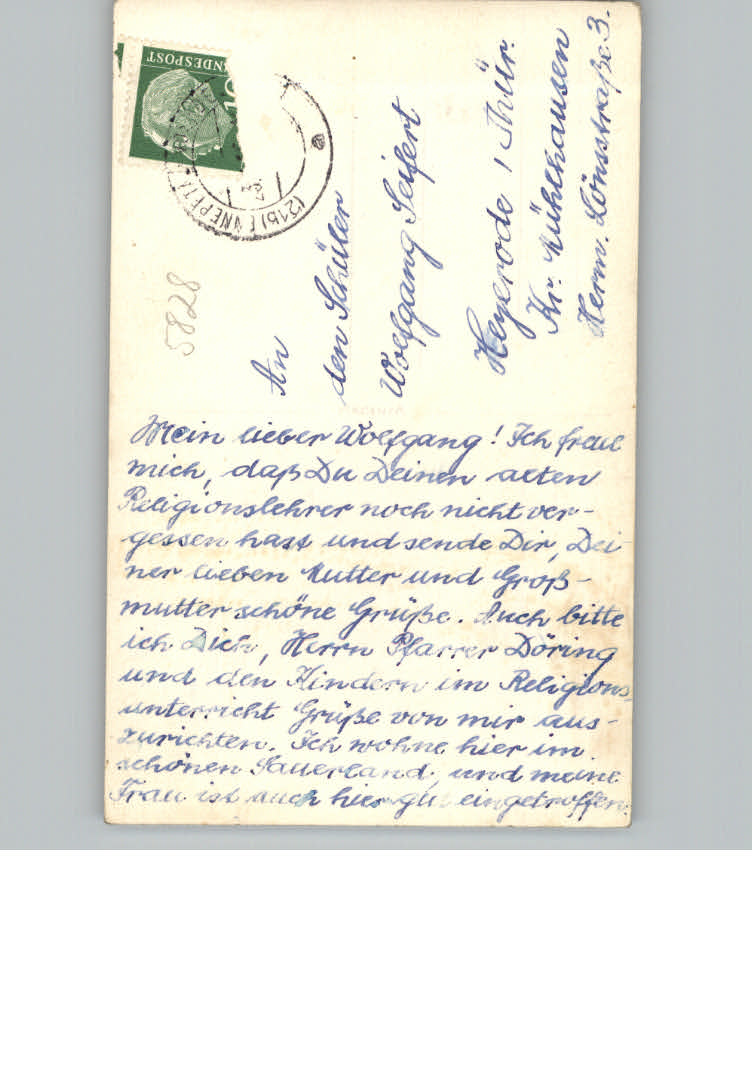 NDESPOST
10
(21b) ENNEPETAL
5828
An
den Schüler
Wolfgang Seifert
Heyerode / Thür.
Kr. Mühlhausen
Herm. Lönsstraße 3.
Mein lieber Wolfgang! Ich freue
mich, daß Du Deinen alten
Religionslehrer noch nicht ver-
gessen hast und sende Dir, Dei
ner lieben Mutter und Groß-
mutter schöne Grüße. Auch bitte
ich Dich, Herrn Pfarrer Döring
und den Kindern im Religions
unterricht Grüße von mir aus-
zurichten. Ich wohne hier im
schönen Sauerland, und meine
Frau ist auch hier gut eingetroffen.